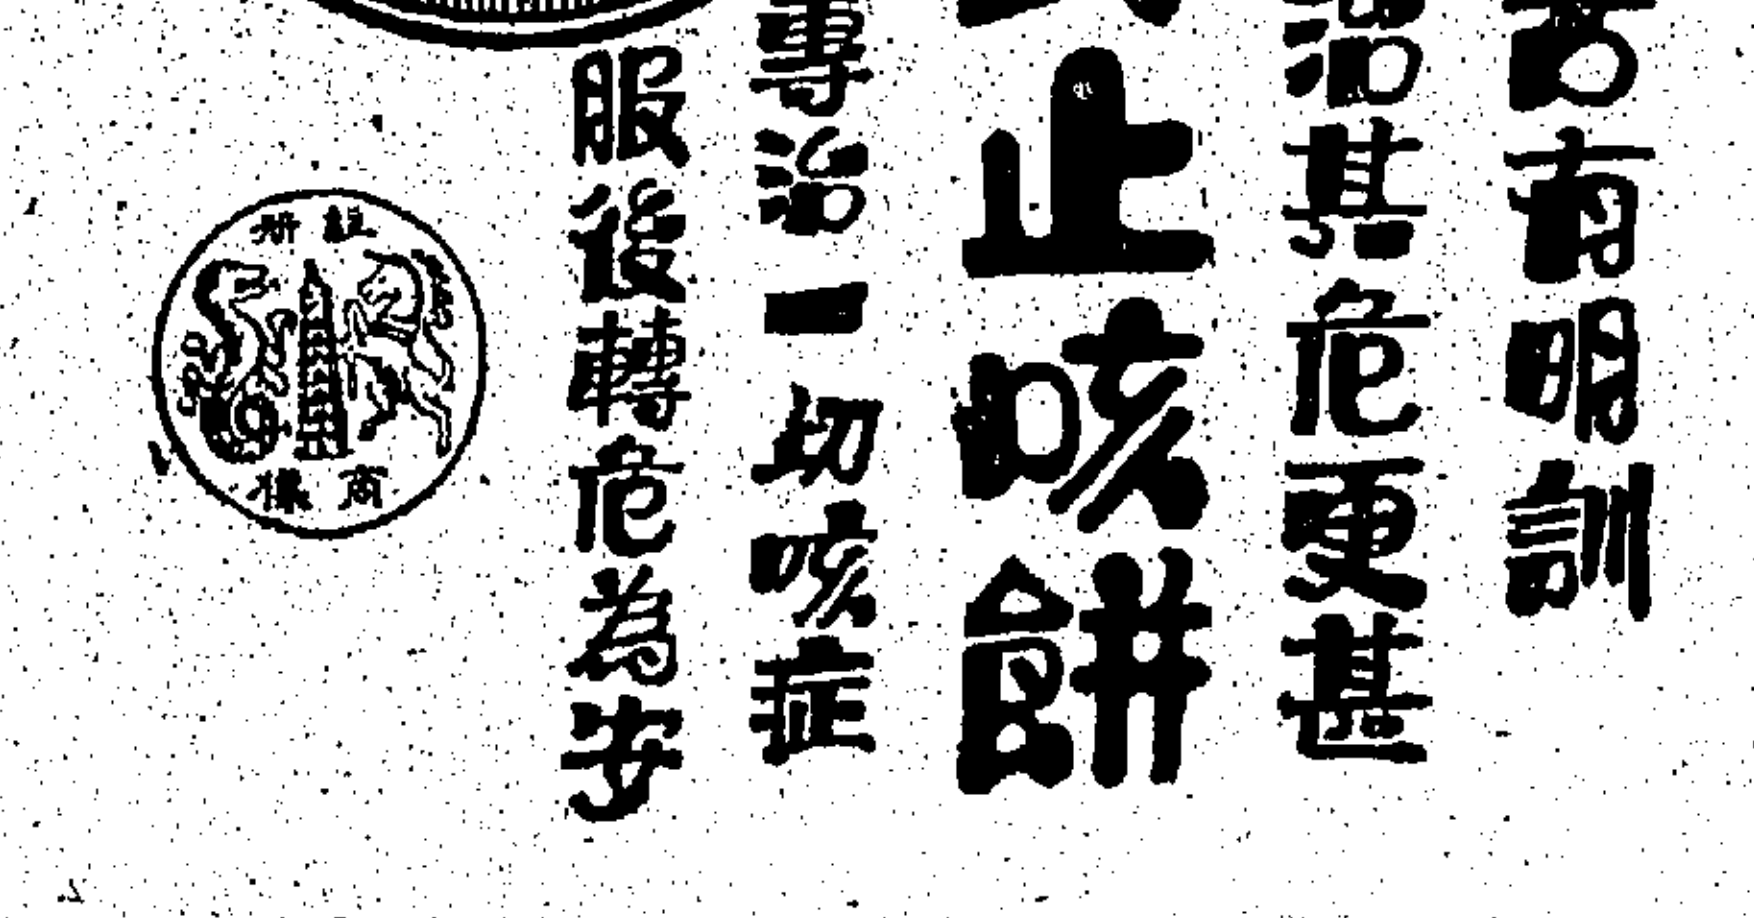 有明訓
治甚危更甚
止咳餅
專治一切咳症
服後轉危為安
註冊
商標